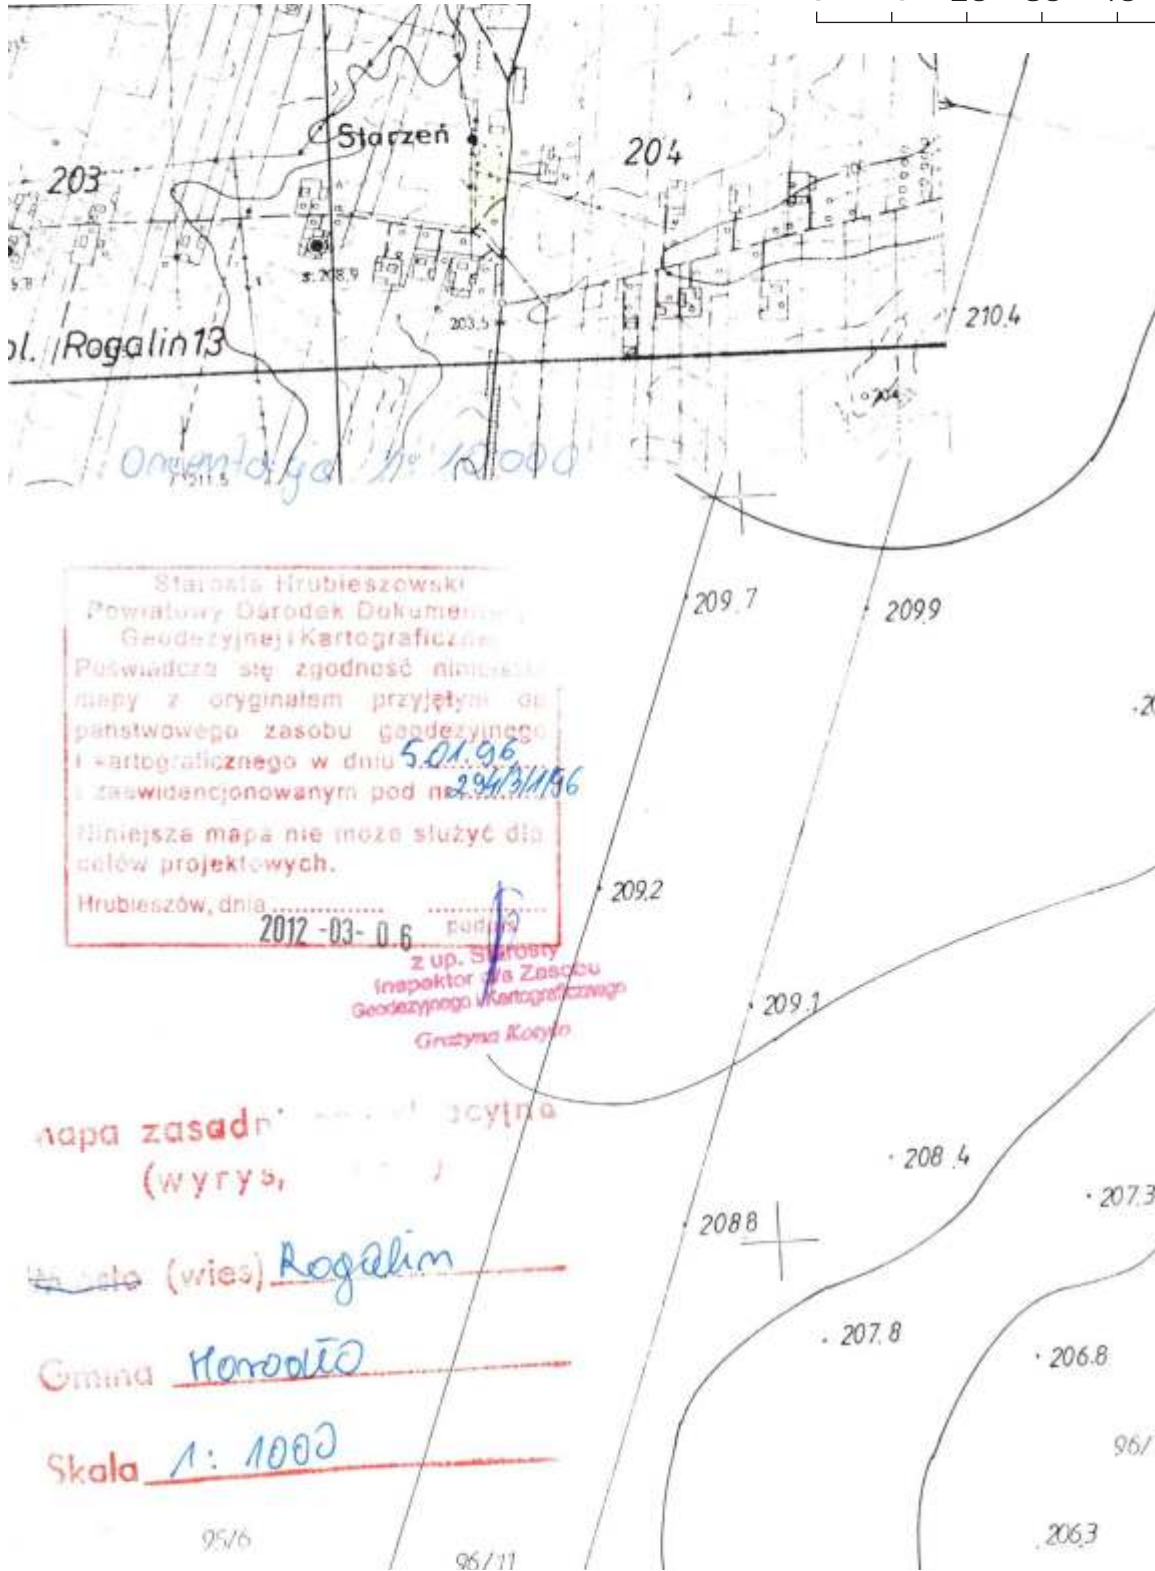 Starzeń
204
203
s. 208,9
203,5
210.4
ol. Rogalin 13
204
211.5
1: 10 000
Starosta Hrubieszowski
Powiatowy Ośrodek
Geodezyjnej i Kartograficznej
209.7
209.9
Poświadcza się zgodność niniejszej
mapy z oryginałem przyjętym do
państwowego zasobu geodezyjnego
i kartograficznego w dniu 5.01.96
i zaewidencjonowanym pod nr 294/3/1/96
Niniejsza mapa nie może służyć dla
celów projektowych.
Hrubieszów, dnia
2012-03-06
podpis
209.2
z up. Starosty
Inspektor d/s Zasobu
Geodezyjnego i Kartograficznego
Grażyna
209.1
mapa
(wyrys,
208.4
207.3
208.8
(wieś) Rogalin
207.8
206.8
Gmina Horodło
96/
Skala 1: 1000
206.3
95/6
96/11